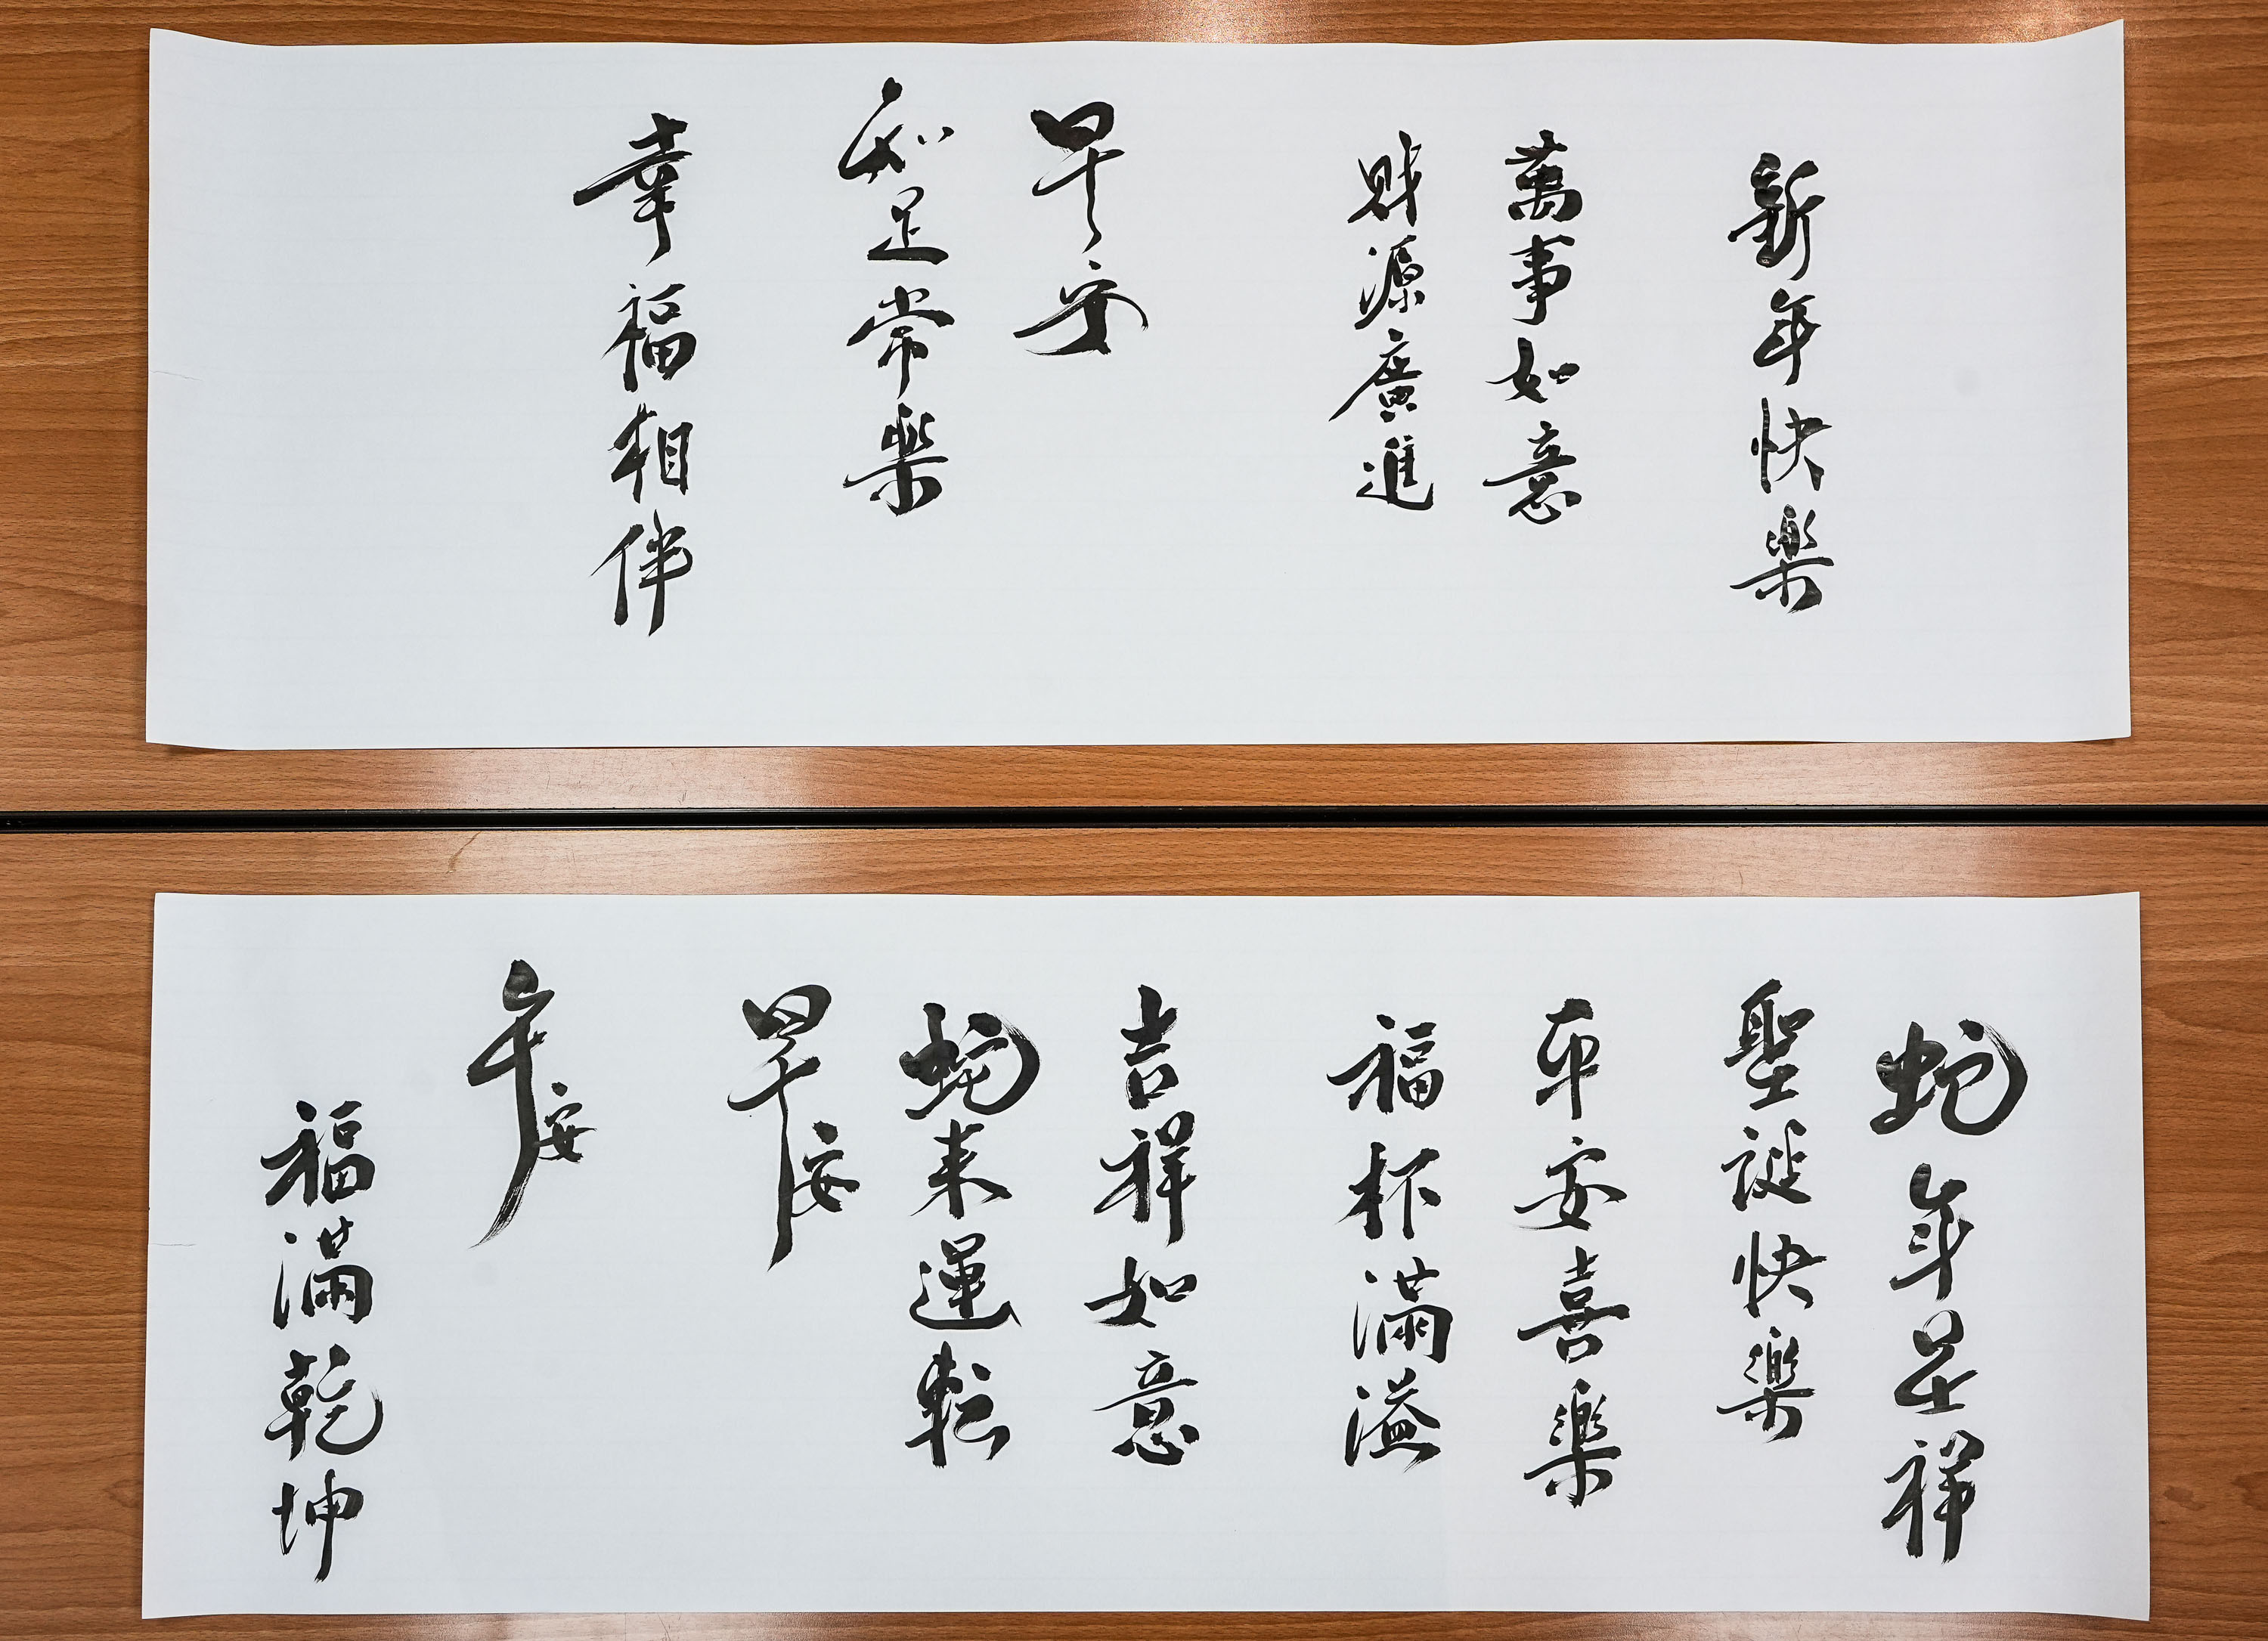 新年快樂
萬事如意
財源廣進
早安
知足常樂
幸福相伴
蛇年呈祥
聖誕快樂
平安喜樂
福杯滿溢
吉祥如意
蛇来運転
早安
午安
福滿乾坤